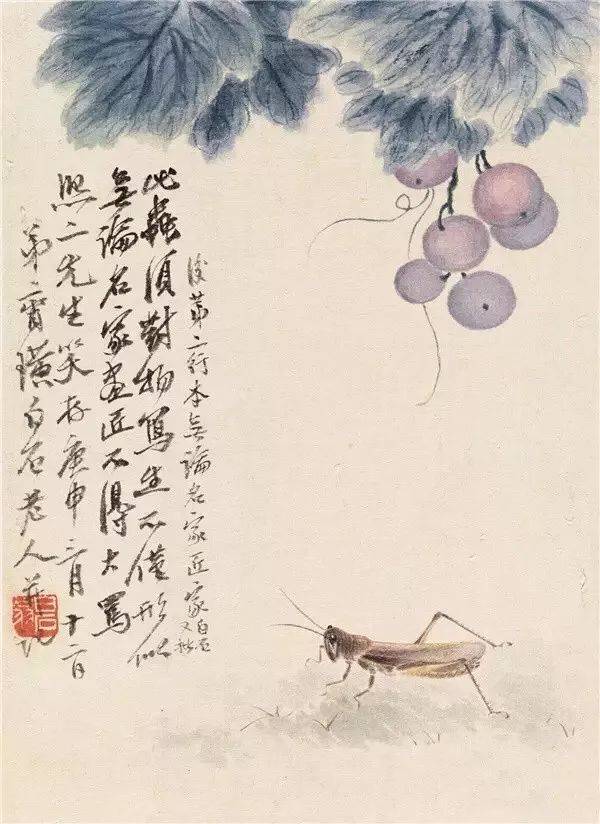 後第二行本無論名家匠家白石又批
此蟲須對物寫生不僅形似
無論名家畫匠不得大罵
熙二先生笑存庚申三月十二日
弟齊璜白石老人并記
白石翁